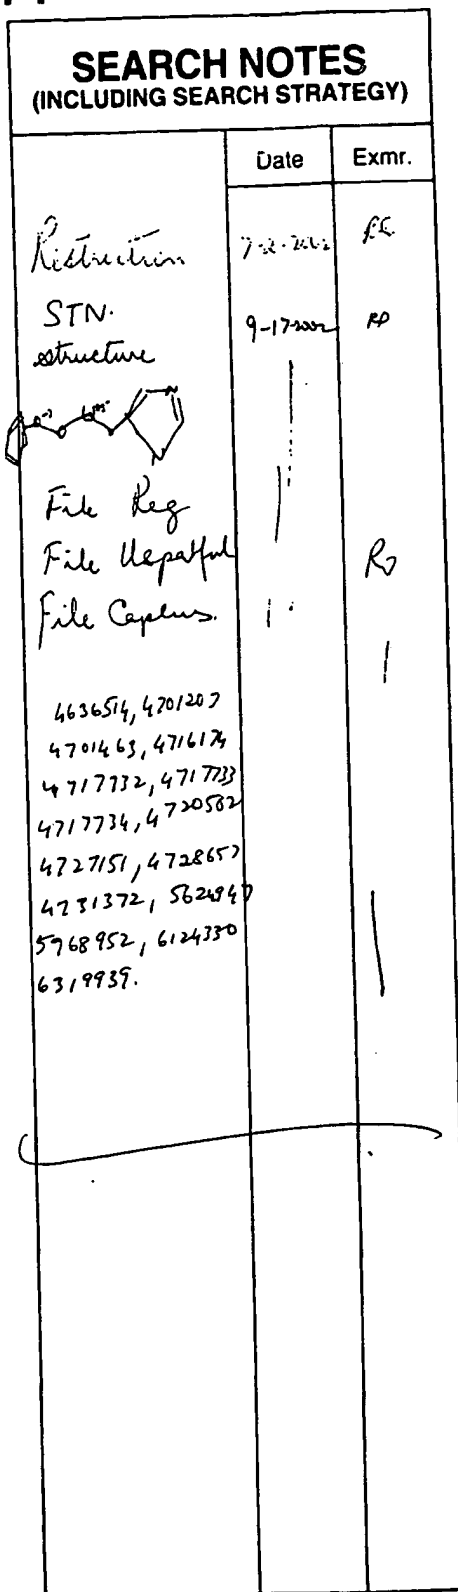 SEARCH NOTES
(INCLUDING SEARCH STRATEGY)
Date Exmr.
Restriction
STN. 9-17-2002
structure
File Reg
File Uspatful
File Caplus.
4636514, 4701207
4701463, 4716174
4717732, 4717733
4717734, 4720502
4727151, 4728657
4731372, 5624947
5968952, 6124330
6319939.